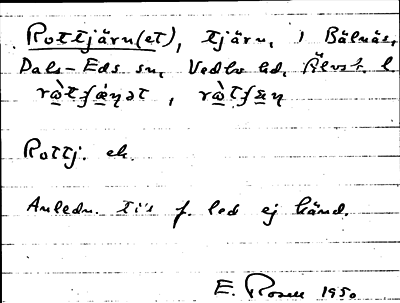 Rottjärn(et), tjärn, i Bälnäs,
Dals-Eds sn, Vedbo hd, Älvsb. l
rὼ̲tʃæ̲ṇət, rὼ̲tʃæ̲ṇ
Rottj. ek.
Anledn. till f. led ej känd.
E. Rosell 1950